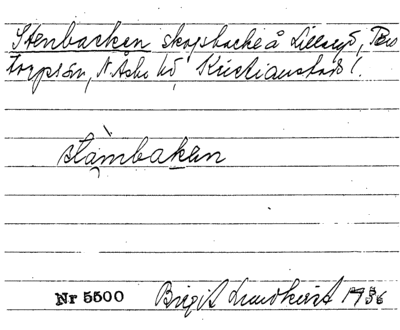 Stenbacken skogsbacke å Lillaryd, Per
torpsån, N Åsbo hd, Kristianstads l.
stambakan
Nr 5500 Birgit Lundkvist 1936